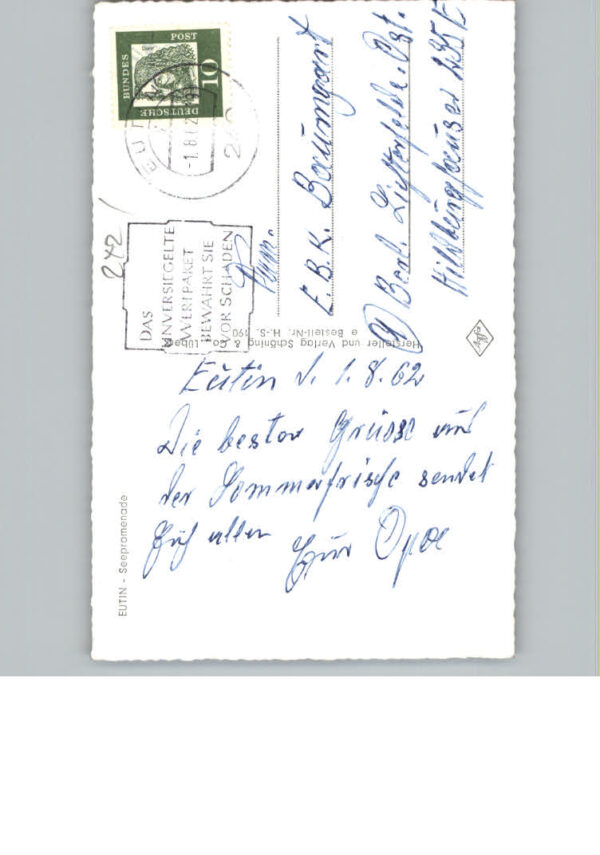 Eutin d. 1.8.62
Die besten Grüsse aus
der Sommerfrische sendet
Euch allen
Euer Opa
EUTIN - Seepromenade
Hersteller und Verlag Schöning & Co., Lübeck
Bestell-Nr. H.-S. 190
Agfa
DEUTSCHE
BUNDES
POST
10
Dürer
-1.8.62
242
DAS
UNVERSIEGELTE
WERTPAKET
BEWAHRT SIE
VOR SCHADEN
E.B.K. Baumgart
Berl. Lichterfelde-Ost.